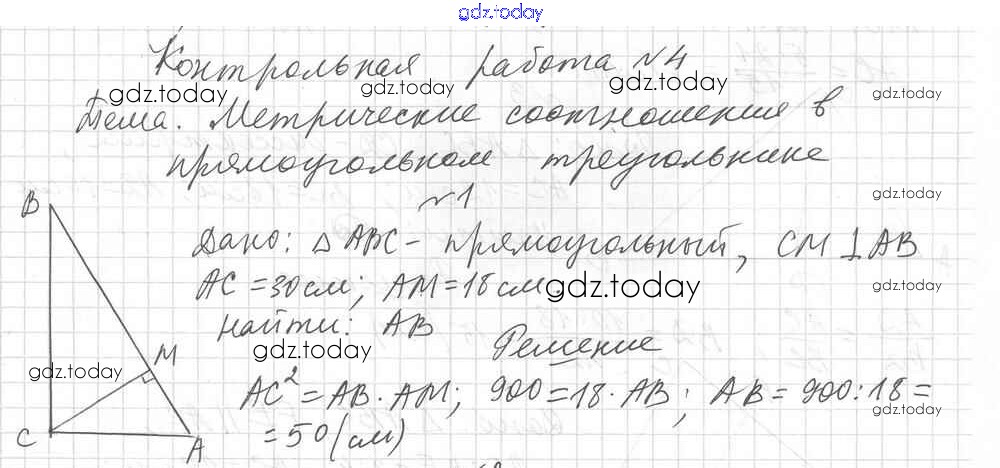 gdz.today
Контрольная работа №4
gdz.today gdz.today gdz.today gdz.today
Тема. Метрические соотношения в
прямоугольном треугольнике
№1
gdz.today
B
Дано: △ABC - прямоугольный, CM ⊥ AB
AC = 30 см; AM = 18 см.
gdz.today gdz.today
Найти: AB
gdz.today
Решение
M
gdz.today
AC² = AB · AM; 900 = 18 · AB; AB = 900 : 18 =
gdz.today
= 50 (см)
C A